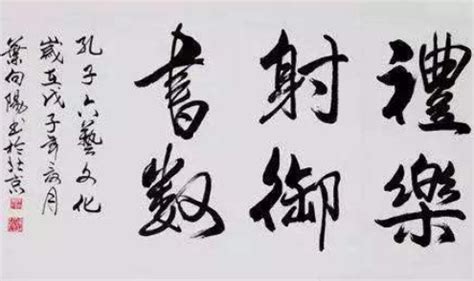 禮樂
射御
書数
孔子六藝文化
歲在戊子年亥月
葉向陽书於北京